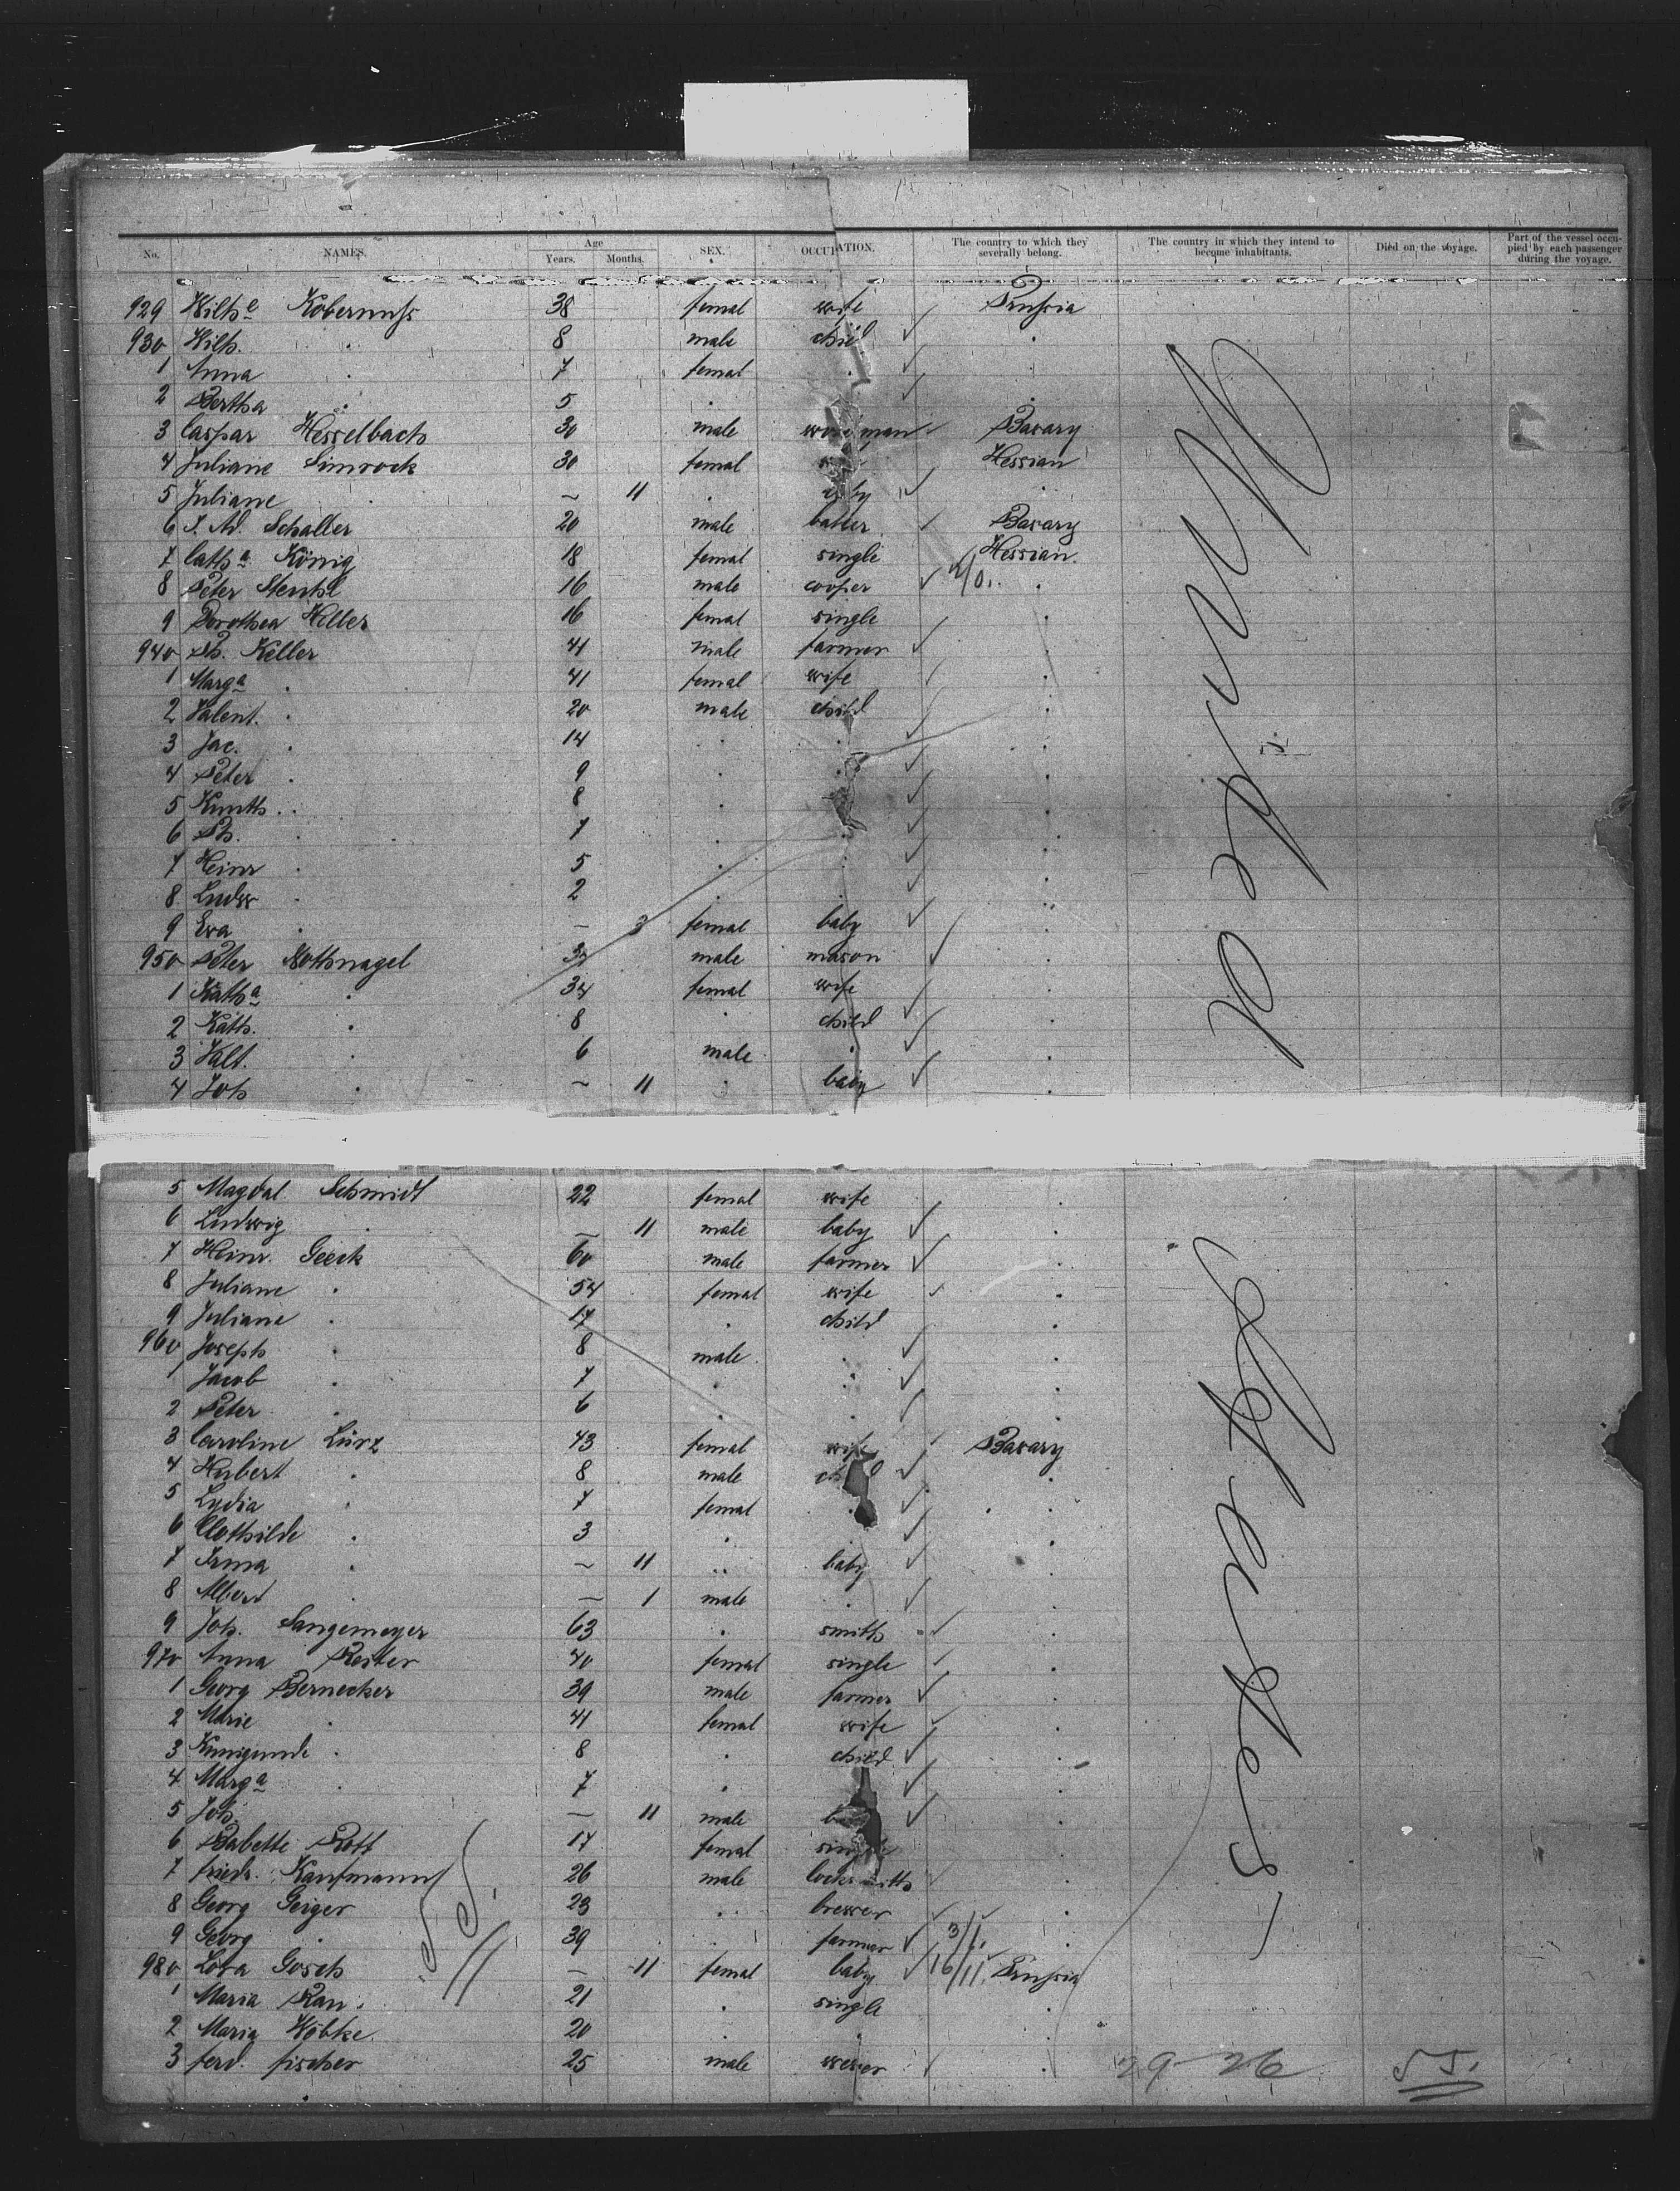 No. NAMES. Age Years. Months. SEX. OCCUPATION. The country to which they severally belong. The country in which they intend to become inhabitants. Died on the voyage. Part of the vessel occupied by each passenger during the voyage.
929 Wilhe Kobernuss 38 femal wife Prussia
930 Wilh. . 8 male child .
1 Anna . 7 femal . .
2 Bertha . 5 . .
3 Caspar Hesselbach 30 male workman Bavary
4 Juliane Simrock 30 femal Hessian
5 Juliane . — 11 . baby .
6 J. Ad. Schaller 20 male Bavary
7 Catha König 18 femal single Hessian.
8 Peter Stenhl 16 male cooper .
9 Dorothea Heller 16 femal single .
940 Ph. Keller 41 male farmer .
1 Marga . 41 femal wife .
2 Valent. . 20 male child .
3 Jac. . 14 . . .
4 Peter . 9 . . .
5 . 8 . .
6 Ph. . 7 . . .
7 Heinr . 5 . . .
8 Ludw . 2 . . .
9 Eva . — 3 femal baby .
950 Peter Nothnagel male mason .
1 Katha . 34 femal wife .
2 Kath. . 8 . child .
3 Valt. . 6 male . .
4 Joh . — 11 . baby .
5 Magdal Schmidt 22 femal wife .
6 Ludwig . — 11 male baby .
7 Heinr. Geeck 60 male farmer .
8 Juliane . 54 femal wife .
9 Juliane . 17 . child .
960 Joseph . 8 male . .
1 Jacob . 7 . . .
2 Peter . 6 . . .
3 Caroline Lürz 43 femal wife Bavary
4 Hubert . 8 male child .
5 Lydia . 7 femal . .
6 Clothilde . 3 . .
7 Irma . — 11 .. baby .
8 Albert . — 1 male . .
9 Joh. Sangemeyer 63 . smith .
970 Anna Reiter 40 femal single .
1 Georg Bernecker 39 male farmer .
2 Marie . 41 femal wife .
3 Kunigunde . 8 . child .
4 Marga . 7 . .
5 Joh. — 11 male .
6 Babette Rott 17 femal single
7 Friedr. Kaufmann 26 male locksmith .
8 Georg Geiger 23 .. brewer .
9 Georg . 39 . farmer 3/1. .
980 Lora Gosch — 11 femal baby 16/11. Prussia
1 Maria Rau . 21 . single .
2 Maria Wöbke. 20 . . .
3 Ferd. Fischer 25 male wever .
29-26 55.